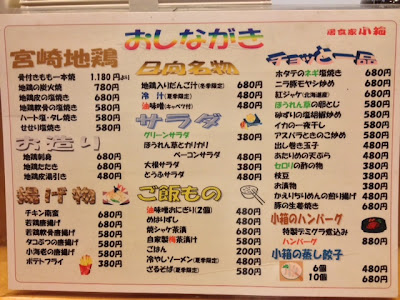 おしながき
居食家 小箱
宮崎地鶏
骨付きもも一本焼 1.180円より
地鶏の炭火焼 780円
地鶏皮の塩焼き 680円
地鶏軟骨の塩焼き 580円
ハート塩・タレ焼き 580円
せせり塩焼き 580円
お造り
地鶏刺身 680円
地鶏たたき 680円
地鶏皮湯引き 480円
揚げ物
チキン南蛮 680円
若鶏唐揚げ 580円
若鶏軟骨唐揚げ 580円
タコぶつの唐揚げ 580円
小海老の唐揚げ 580円
ポテトフライ 380円
日向名物
地鶏入りだんご汁(冬季限定) 680円
冷汁(夏季限定) 580円
油味噌(キャベツ付) 480円
サラダ
グリーンサラダ 380円
ほうれん草とかりかり
ベーコンサラダ 480円
大根サラダ 380円
とうふサラダ 480円
ご飯もの
油味噌おにぎり(2個) 480円
めはりずし 480円
焼シャケ茶漬 580円
自家製梅茶漬け 580円
ごはん 200円
冷やしソーメン(夏季限定) 480円
ざるそば(夏季限定) 580円
チョッと一品
ホタテのネギ塩焼き 680円
ニラ豚モヤシ炒め 580円
紅ジャケ(北海道産) 680円
ほうれん草の卵とじ 580円
砂ずりの塩胡椒炒め 580円
イカの一夜干し 580円
アスパラときのこ炒め 580円
出し巻き玉子 480円
おたりめの天ぷら 480円
セロリの酢の物 380円
枝豆 380円
お漬物 380円
かえりちりめんの煎り揚げ 480円
豚の生姜焼き 680円
小箱のハンバーグ
特製デミグラ煮込み
ハンバーグ 880円
小箱の蒸し餃子
6個 480円
10個 680円